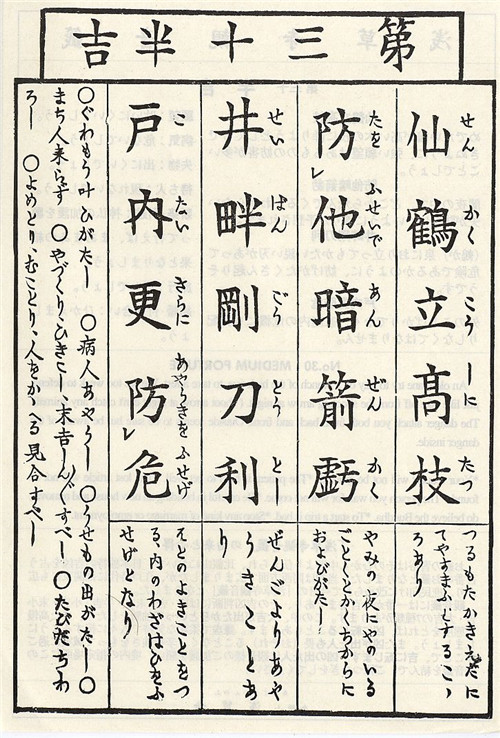 第三十半吉
仙鶴立高枝
せんかくこうしにたつ
つるもたかきえだに
てやすきふとするこゝ
ろあり
防レ他暗箭虧
ふせいであんぜんか
やみの夜にやのいる
ごとしとかくちからに
およびがたし
井畔剛刀利
せいはんごうとうと
ぜんごよりあや
うきこゝろあ
り
戸内更防レ危
こたいさらにあやうきをふせぐ
内のわざはひをふ
せげとなり
○ぐわもう叶ひがたし ○病人あやうし ○うせもの出がたし ○
まち人来らず ○やづくり、ひきこし末吉 すべし ○たびだちわ
ろし ○よめどり、むことり、人をかゝへる見合すべし